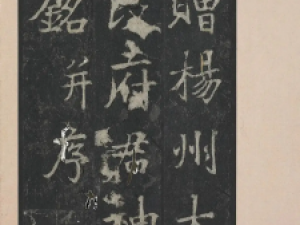 贈楊州大
段府君神
銘并序